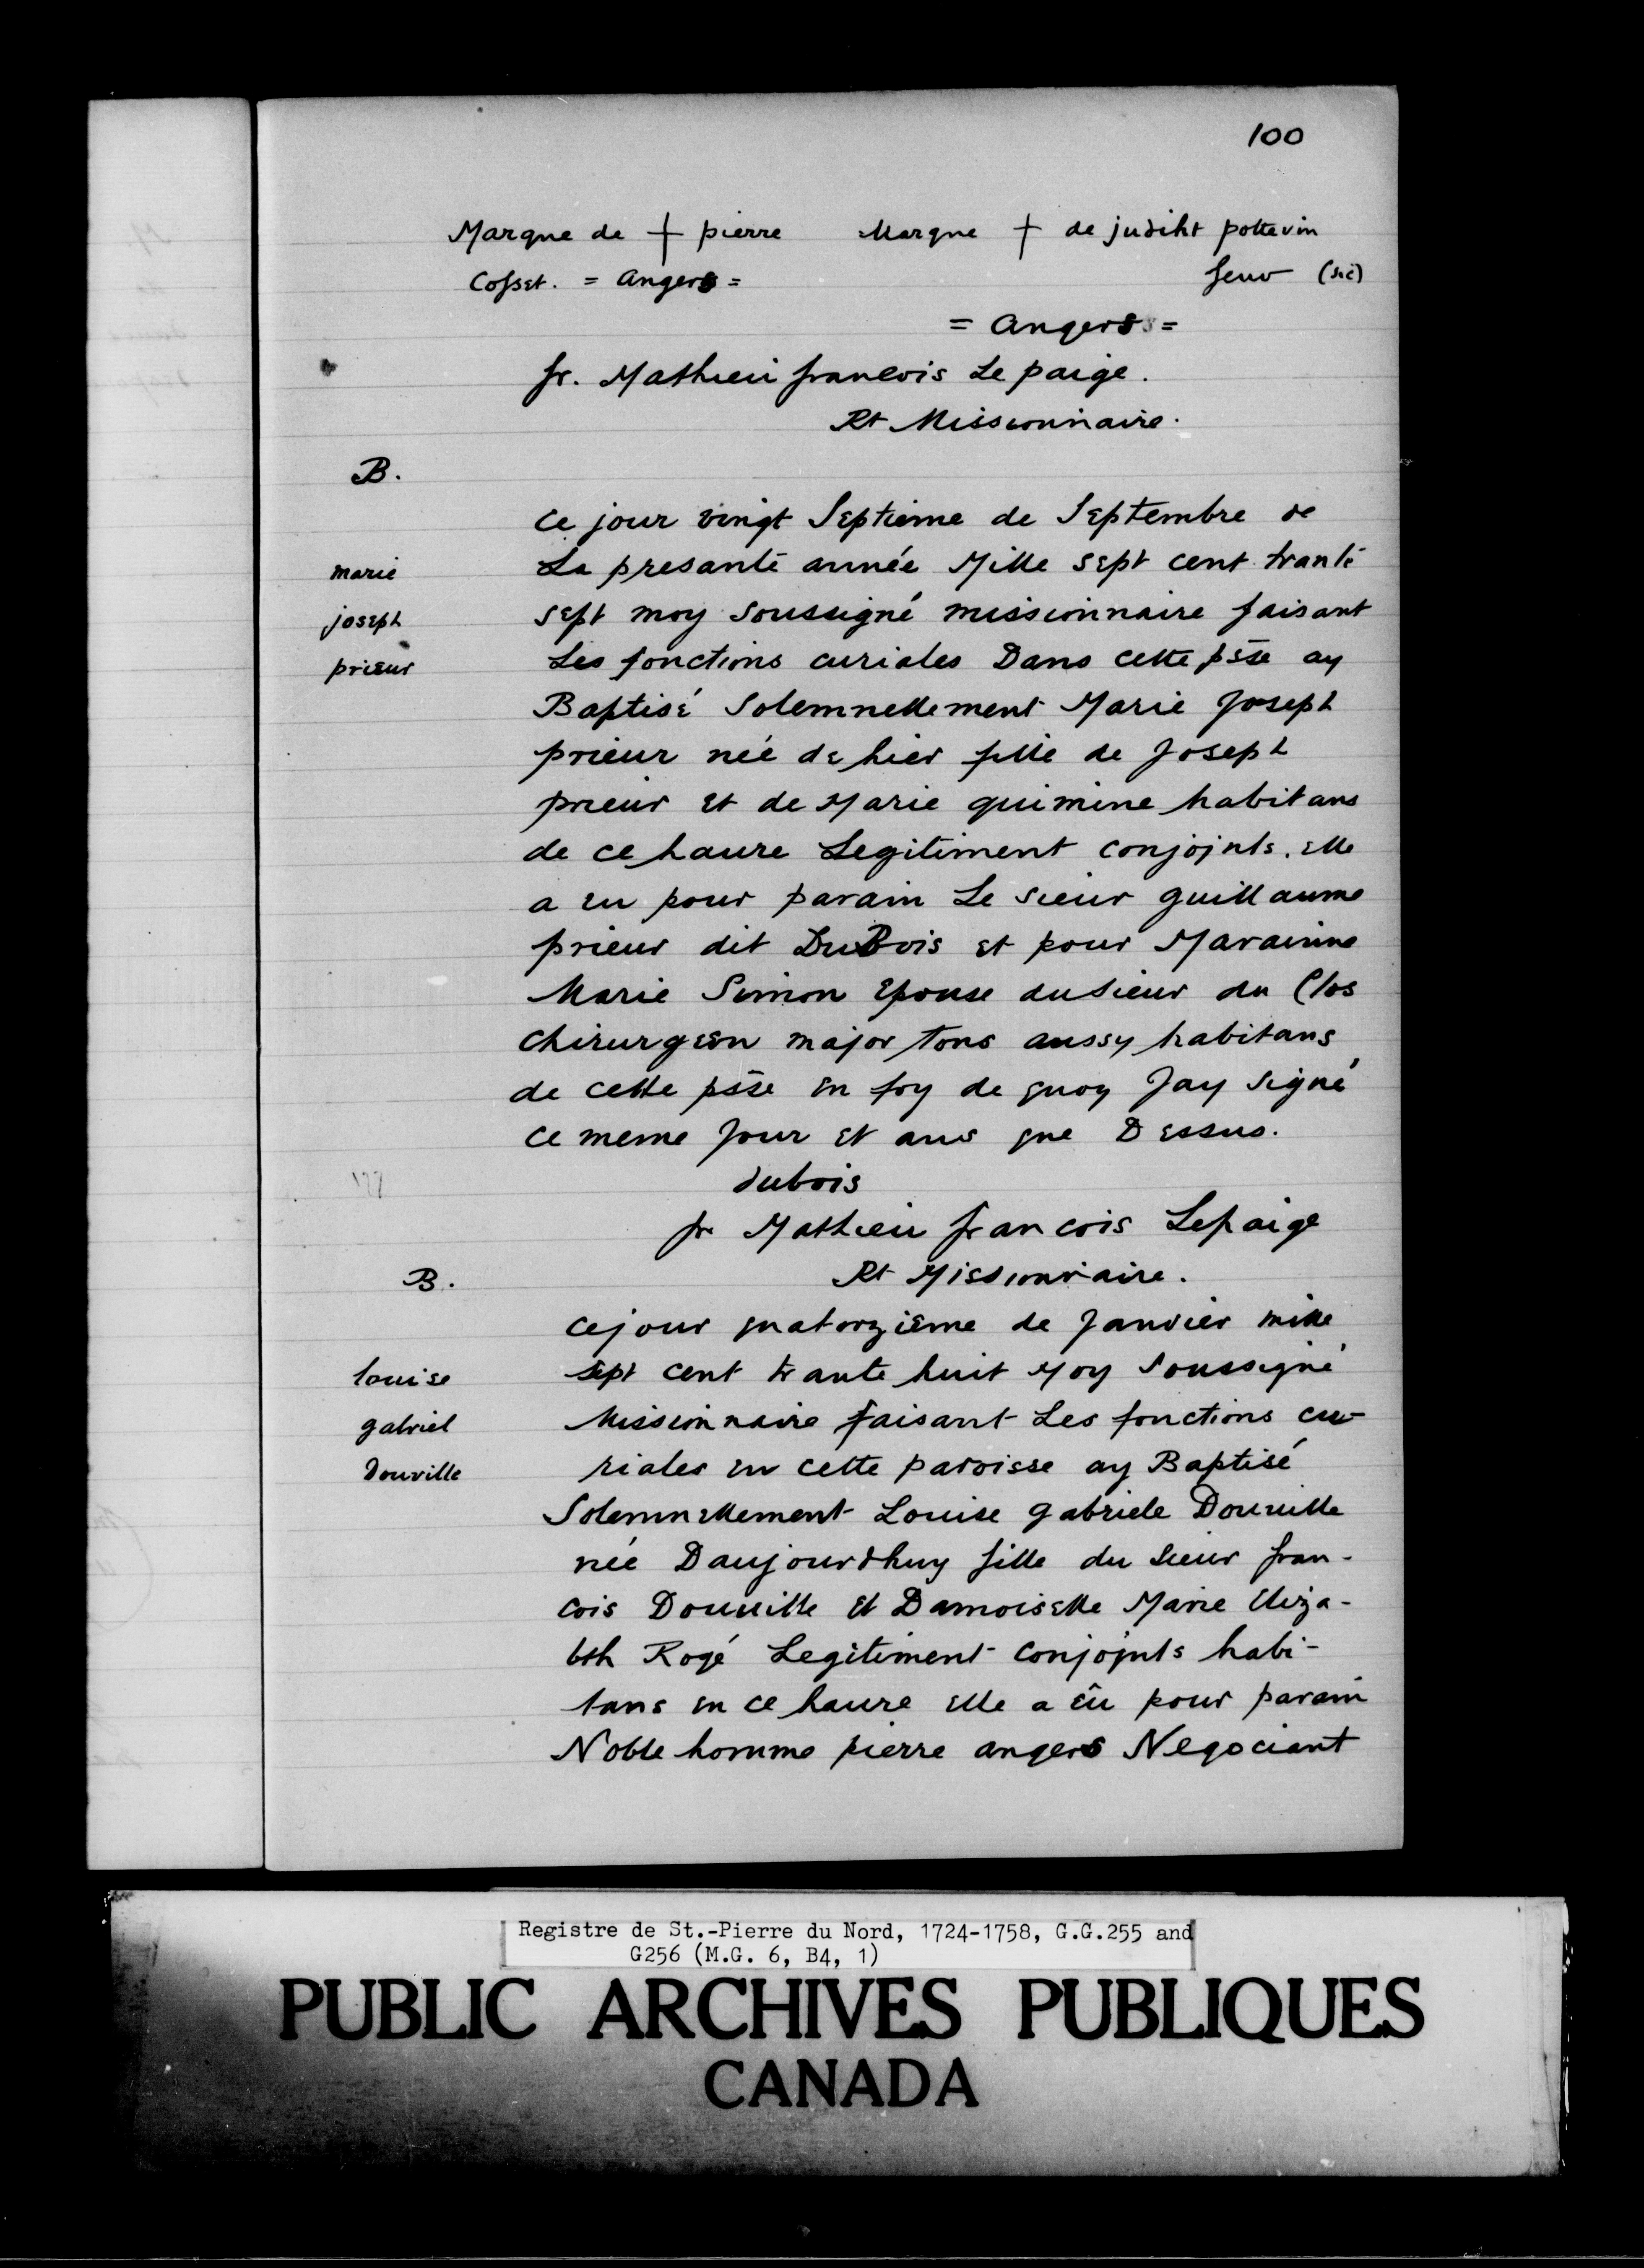 100
Marque de + pierre Marque + de judiht pottevin
Cosset. = Angers = feuv (sic)
= Angers =
fr. Mathieu francois Le paige.
Rt Missionnaire.
B.
ce jour vingt Septieme de Septembre de
marie La presante année Mille sept cent trante
joseph sept moy soussigné missionnaire faisant
prieur Les fonctions curiales Dans cette psse ay
Baptisé Solemnellement Marie Joseph
prieur née de hier fille de Joseph
prieur et de Marie quimine habitans
de ce haure Legitiment conjojnts. elle
a eu pour parain Le sieur guillaume
prieur dit DuBois et pour Marainne
Marie Simon Epouse du Sieur du Clos
chirurgeon major tous aussy habitans
de cette psse en foy de quoy Jay signé
ce meme Jour et ans que Dessus.
dubois
fr Mathieu francois Lepaige
B. Rt Missionnaire.
ce jour quatorzieme de Janvier mille
louise sept cent trante huit Moy Soussigné
gabriel Missionnaire faisant Les fonctions cu-
douville riales en cette paroisse ay Baptisé
Solemnellement Louise gabriele Douuille
née Daujourdhuy fille du Sieur fran-
cois Douuille et Damoiselle Marie Eliza-
beth Rogé Legitiment conjojnts habi-
tans en ce haure elle a eû pour parain
Noble homme pierre angers Negociant
Registre de St.-Pierre du Nord, 1724-1758, G.G.255 and
G256 (M.G. 6, B4, 1)
PUBLIC ARCHIVES PUBLIQUES
CANADA